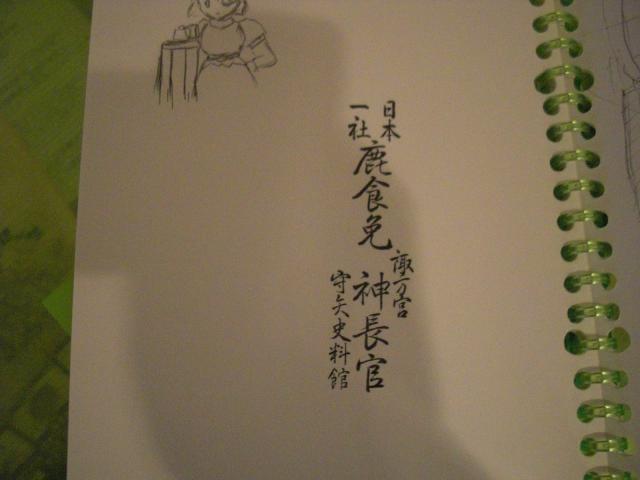 日本
一社
鹿食免
諏方宮
神長官
守矢史料館